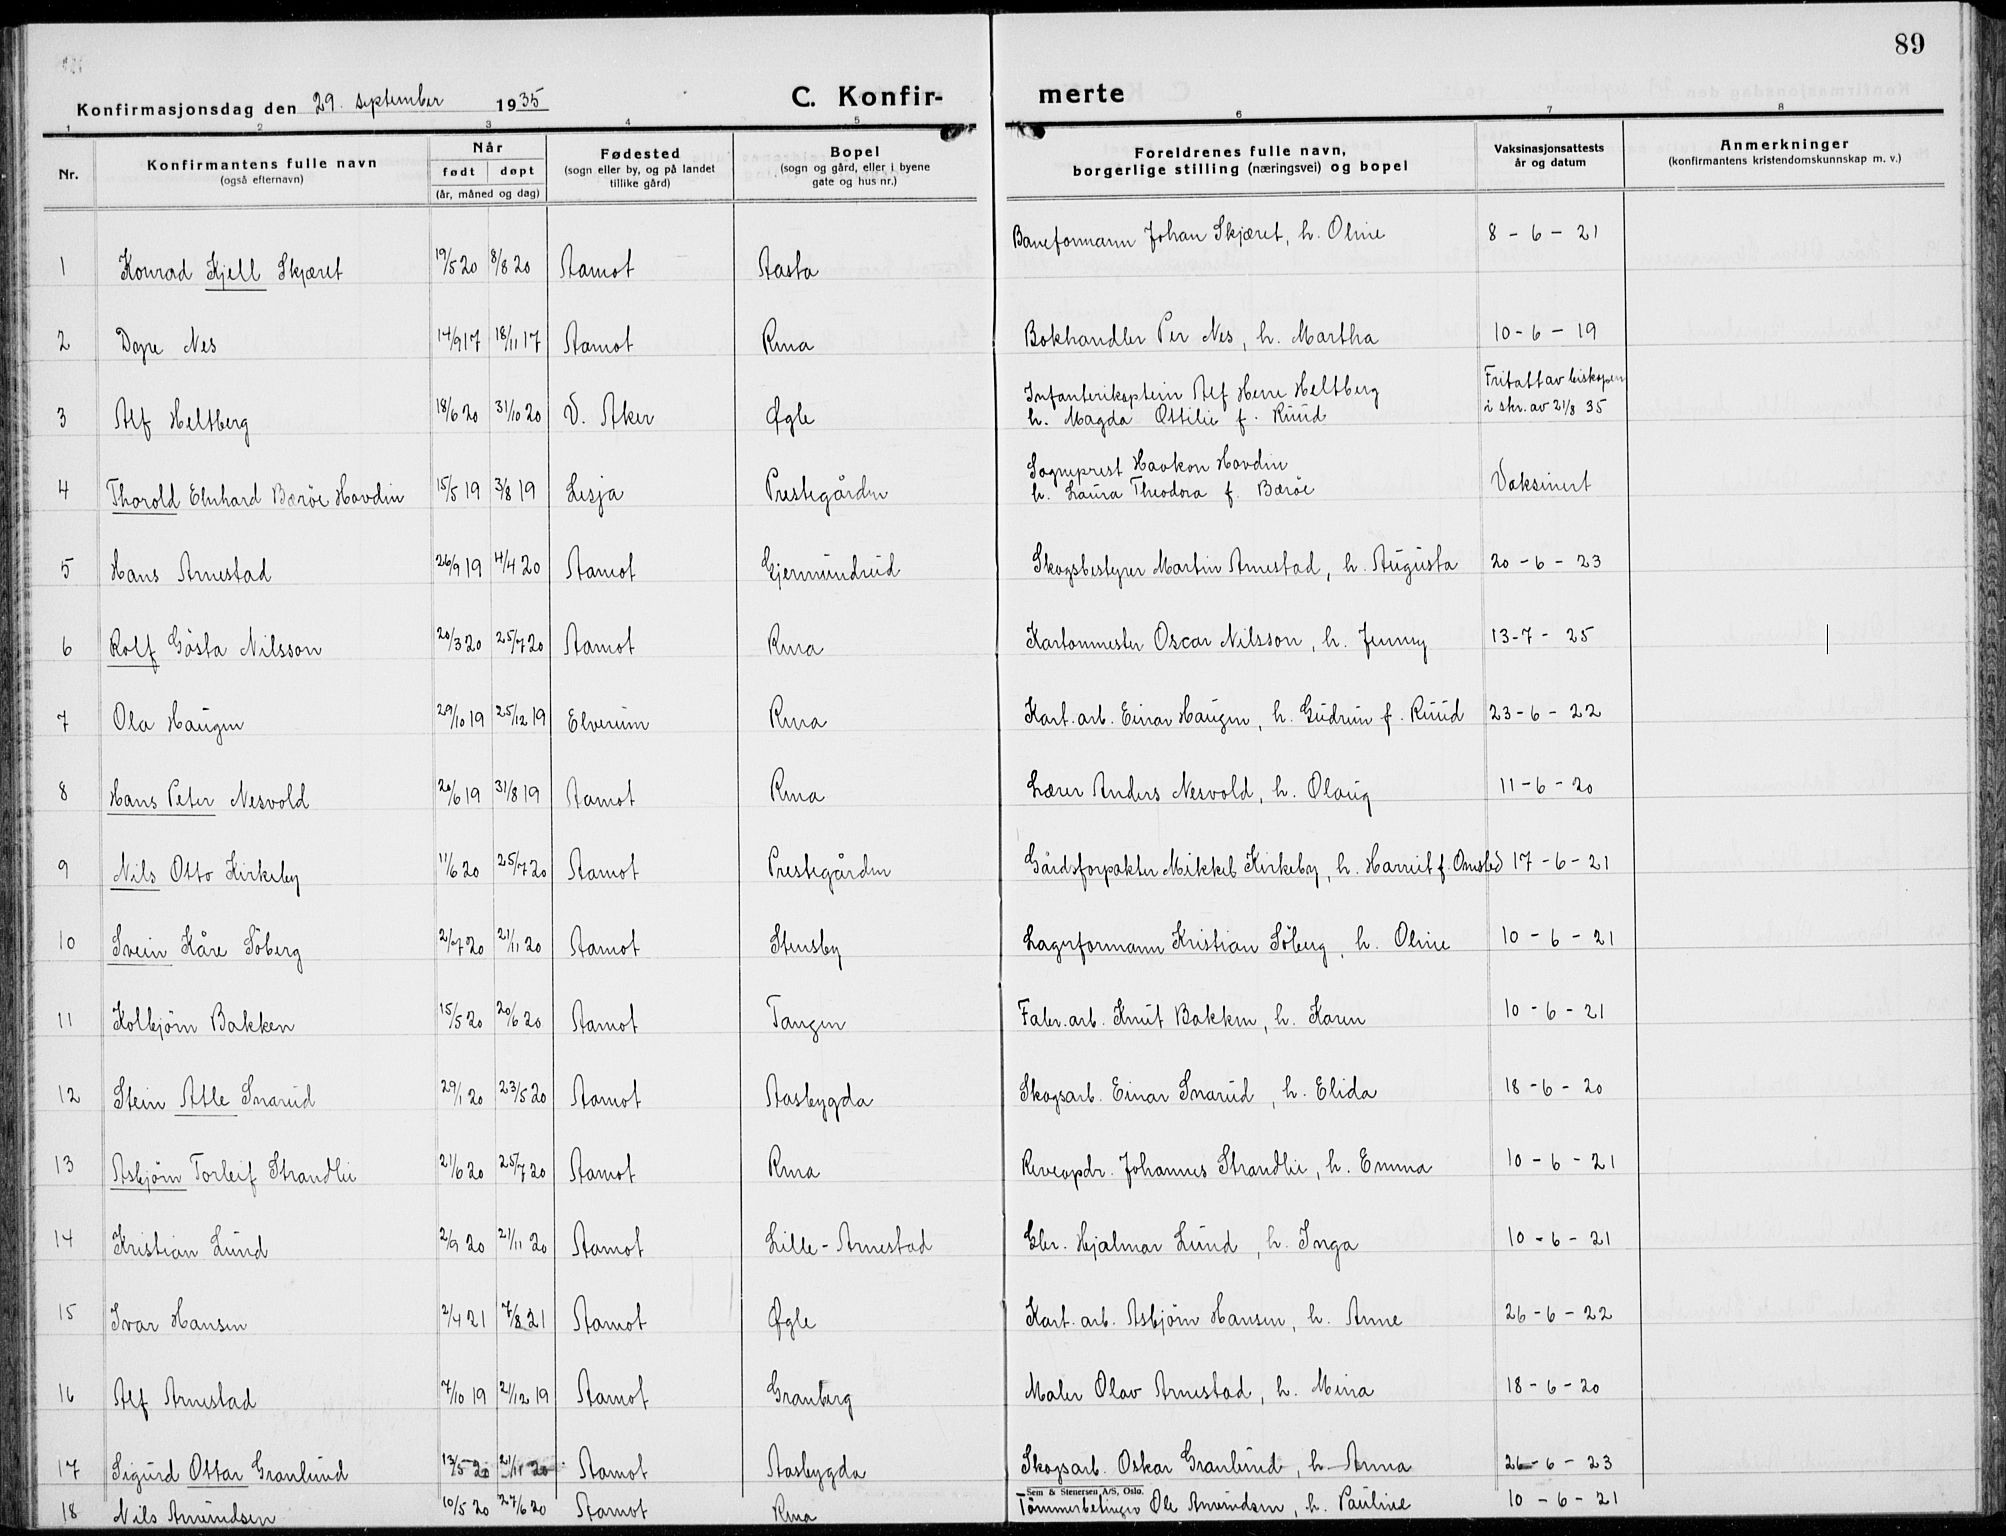 89
Konfirmasjonsdag den 29. september 1935 C. Konfirmerte
1 2 3 4 5 6 7 8
Nr. | Konfirmantens fulle navn (også efternavn) | Når født døpt (år, måned og dag) | Fødested (sogn eller by, og på landet tillike gård) | Bopel (sogn og gård, eller i byene gate og hus nr.) | Foreldrenes fulle navn, borgerlige stilling (næringsvei) og bopel | Vaksinasjonsattests år og datum | Anmerkninger (konfirmantens kristendomskunnskap m. v.)
1 Konrad Kjell Skjæret 19/5 20 8/8 20 Aamot Aasta Baneformann Johan Skjæret, h. Oline 8-6-21
2 Dyre Nes 14/9 17 18/11 17 Aamot Rena Bokhandler Per Nes, h. Martha 10-6-19
3 Alf Heltberg 18/6 20 31/10 20 V. Aker Øgle Infanterikaptein Alf Herre Heltberg
h. Magda Ottilie f. Ruud Fritatt av biskopen
i skr. av 21/8 35
4 Thorold Ehrhard Bærøe Hovdin 15/5 19 3/8 19 Lesja Prestegården Sogneprest Haakon Hovdin
h. Laura Theodora f. Bærøe Vaksinert
5 Hans Arnestad 26/9 19 4/4 20 Aamot Gjermundrud Skogsbestyrer Martin Arnestad, h. Augusta 20-6-23
6 Rolf Gösta Nilsson 20/3 20 25/7 20 Aamot Rena Kartonmester Oscar Nilsson, h. Jenny 13-7-25
7 Ola Haugen 29/10 19 25/12 19 Elverum Rena Kart. arb. Einar Haugen, h. Gudrun f. Ruud 23-6-22
8 Hans Peter Nesvold 20/6 19 31/8 19 Aamot Rena Lærer Anders Nesvold, h. Olaug 11-6-20
9 Nils Otto Kirkeby 11/6 20 25/7 20 Aamot Prestegården Gårdsforpakter Mikkel Kirkeby, h. Harriet f. Omsted 17-6-21
10 Svein Kåre Söberg 2/7 20 21/11 20 Aamot Stensby Lagerformann Kristian Söberg, h. Oline 10-6-21
11 Kolbjörn Bakken 15/5 20 20/6 20 Aamot Tangen Fabr. arb. Knut Bakken, h. Karen 10-6-21
12 Stein Atle Snarud 29/1 20 23/5 20 Aamot Aasbygda Skogsarb. Einar Snarud, h. Elida 18-6-20
13 Asbjörn Torleif Strandlie 21/6 20 25/7 20 Aamot Rena Reveopdr. Johannes Strandlie, h. Emma 10-6-21
14 Kristian Lund 2/9 20 21/11 20 Aamot Lille-Arnestad Gbr. Hjalmar Lund, h. Inga 10-6-21
15 Ivar Hansen 2/4 21 7/8 21 Aamot Øgle Kart. arb. Asbjörn Hansen, h. Anne 26-6-22
16 Alf Arnestad 7/10 19 21/12 19 Aamot Granberg Maler Olav Arnestad, h. Mina 18-6-20
17 Sigurd Ottar Granlund 13/5 20 21/11 20 Aamot Aasbygda Skogsarb. Oskar Granlund, h. Anna 26-6-23
Sem & Stenersen A/S, Oslo.
18 Nils Amundsen 10/5 20 27/6 20 Aamot Rena Tömmerbetinger Ole Amundsen, h. Pauline 10-6-21